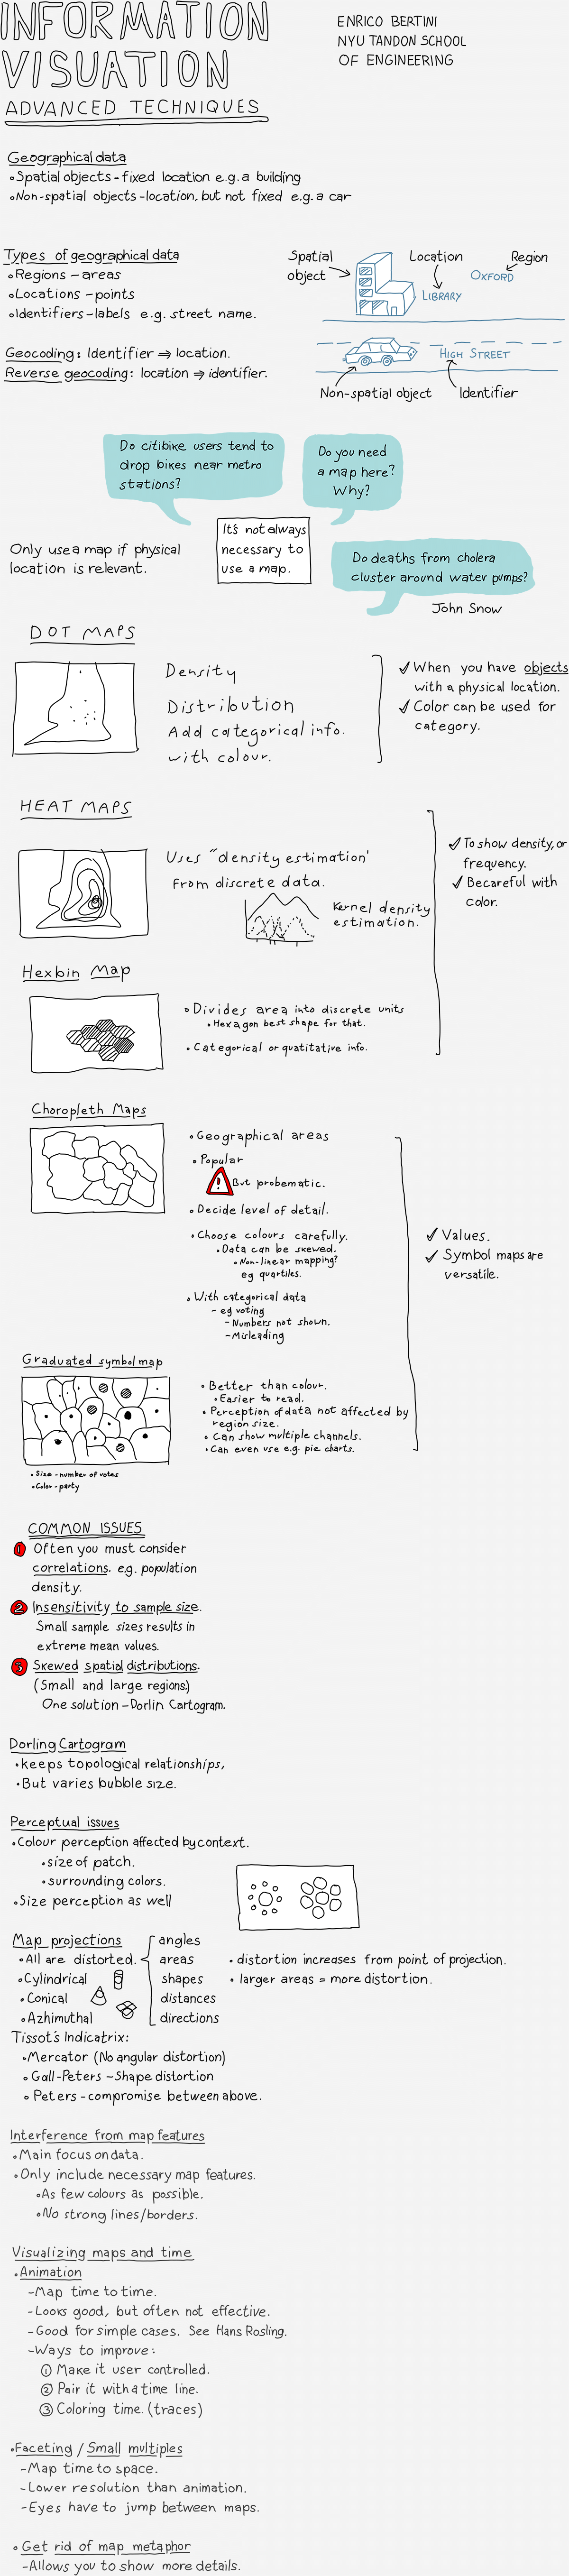 INFORMATION
VISUATION
ADVANCED TECHNIQUES
ENRICO BERTINI
NYU TANDON SCHOOL
OF ENGINEERING
Geographical data
•Spatial objects - fixed location e.g. a building
•Non-spatial objects - location, but not fixed e.g. a car
Types of geographical data
•Regions - areas
•Locations - points
•Identifiers - labels e.g. street name.
Geocoding: Identifier ⇒ location.
Reverse geocoding: location ⇒ identifier.
Spatial
object
Location
Region
OXFORD
LIBRARY
HIGH STREET
Non-spatial object
Identifier
Do citibike users tend to
drop bikes near metro
stations?
Do you need
a map here?
Why?
Only use a map if physical
location is relevant.
It's not always
necessary to
use a map.
Do deaths from cholera
cluster around water pumps?
John Snow
DOT MAPS
Density
Distribution
Add categorical info.
with colour.
✓ When you have objects
with a physical location.
✓ Color can be used for
category.
HEAT MAPS
Uses "density estimation"
from discrete data.
Kernel density
estimation.
✓ To show density, or
frequency.
✓ Becareful with
color.
Hexbin Map
• Divides area into discrete units
• Hexagon best shape for that.
• Categorical or quatitative info.
Choropleth Maps
• Geographical areas
• Popular
! But probematic.
• Decide level of detail.
• Choose colours carefully.
• Data can be skewed.
• Non-linear mapping?
eg quartiles.
• With categorical data
- eg voting
- Numbers not shown.
- Misleading
✓ Values.
✓ Symbol maps are
versatile.
Graduated symbol map
• Better than colour.
• Easier to read.
• Perception of data not affected by
region size.
• Can show multiple channels.
• Can even use e.g. pie charts.
• Size - number of votes
• Color - party
COMMON ISSUES
1 Often you must consider
correlations. e.g. population
density.
2 Insensitivity to sample size.
Small sample sizes results in
extreme mean values.
3 Skewed spatial distributions.
(Small and large regions.)
One solution - Dorlin Cartogram.
Dorling Cartogram
• keeps topological relationships,
• But varies bubble size.
Perceptual issues
• Colour perception affected by context.
• size of patch.
• surrounding colors.
• Size perception as well
Map projections
• All are distorted.
• Cylindrical
• Conical
• Azhimuthal
angles
areas
shapes
distances
directions
• distortion increases from point of projection.
• larger areas = more distortion.
Tissot's Indicatrix:
• Mercator (No angular distortion)
• Gall-Peters - Shape distortion
• Peters - compromise between above.
Interference from map features
• Main focus on data.
• Only include necessary map features.
• As few colours as possible.
• No strong lines/borders.
Visualizing maps and time
• Animation
- Map time to time.
- Looks good, but often not effective.
- Good for simple cases. See Hans Rosling.
- Ways to improve:
① Make it user controlled.
② Pair it with a time line.
③ Coloring time. (traces)
• Faceting / Small multiples
- Map time to space.
- Lower resolution than animation.
- Eyes have to jump between maps.
• Get rid of map metaphor
- Allows you to show more details.